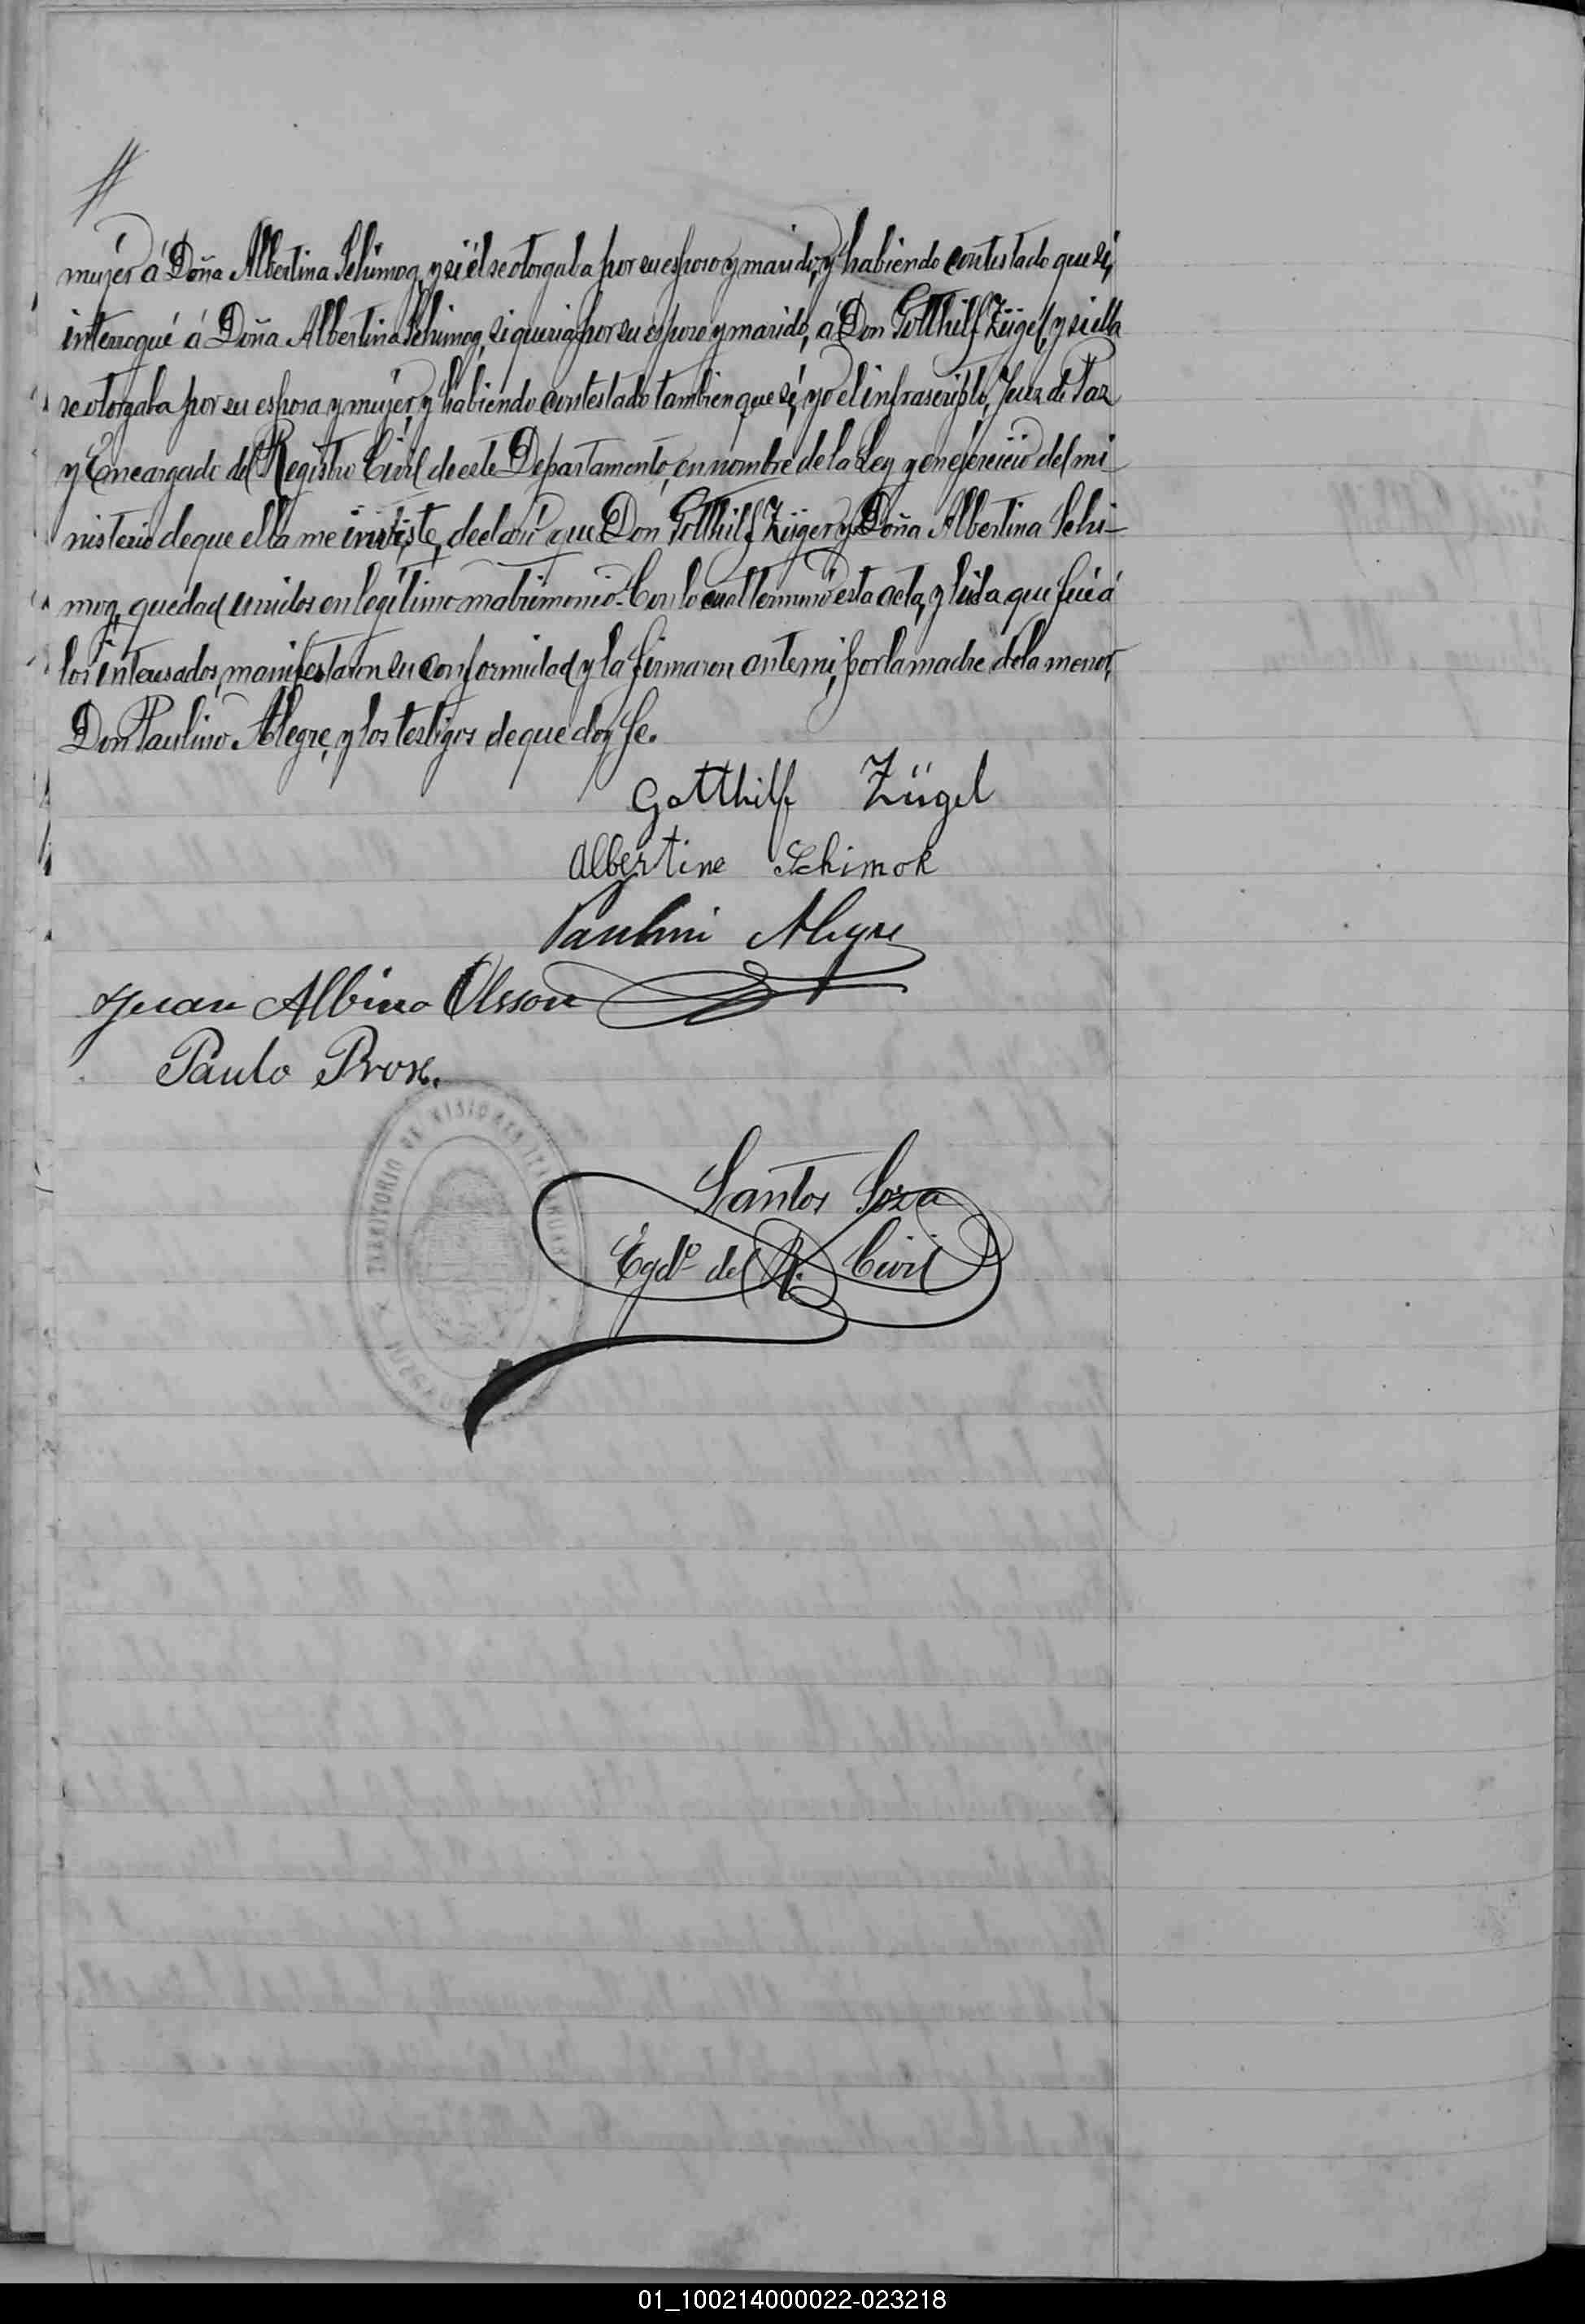 mujer á Doña Albertina Schimog, y si él se otorgaba por su esposo y marido, y habiendo contestado que sí,
interrogué á Doña Albertina Schimog, si queria por su esposo y marido, á Don Gotthilf Zügel, y si ella
se otorgaba por su esposa y mujer, y habiendo contestado tambien que sí, yo el infrascripto, Juez de Paz
y Encargado del Registro Civil de este Departamento, en nombre de la Ley y en ejercicio del mi-
nisterio de que ella me inviste, declaré que Don Gotthilf Züger y Doña Albertina Schi-
mog, quedad unidos en legítimo matrimonio. Con lo cual terminó esta acta, y leida que fué á
los interesados, manifestaron su conformidad y la firmaron ante mi, por la madre de la menor,
Don Paulino Alegre, y los testigos de que doy fe.
Gotthilf Zügel
Albertine Schimok
Paulini Alegre
Juan Albino Olsson
Paulo Prox.
TERRITORIO DE MISIONES
Santos Soza
Egdº del R. Civil
01_100214000022-023218